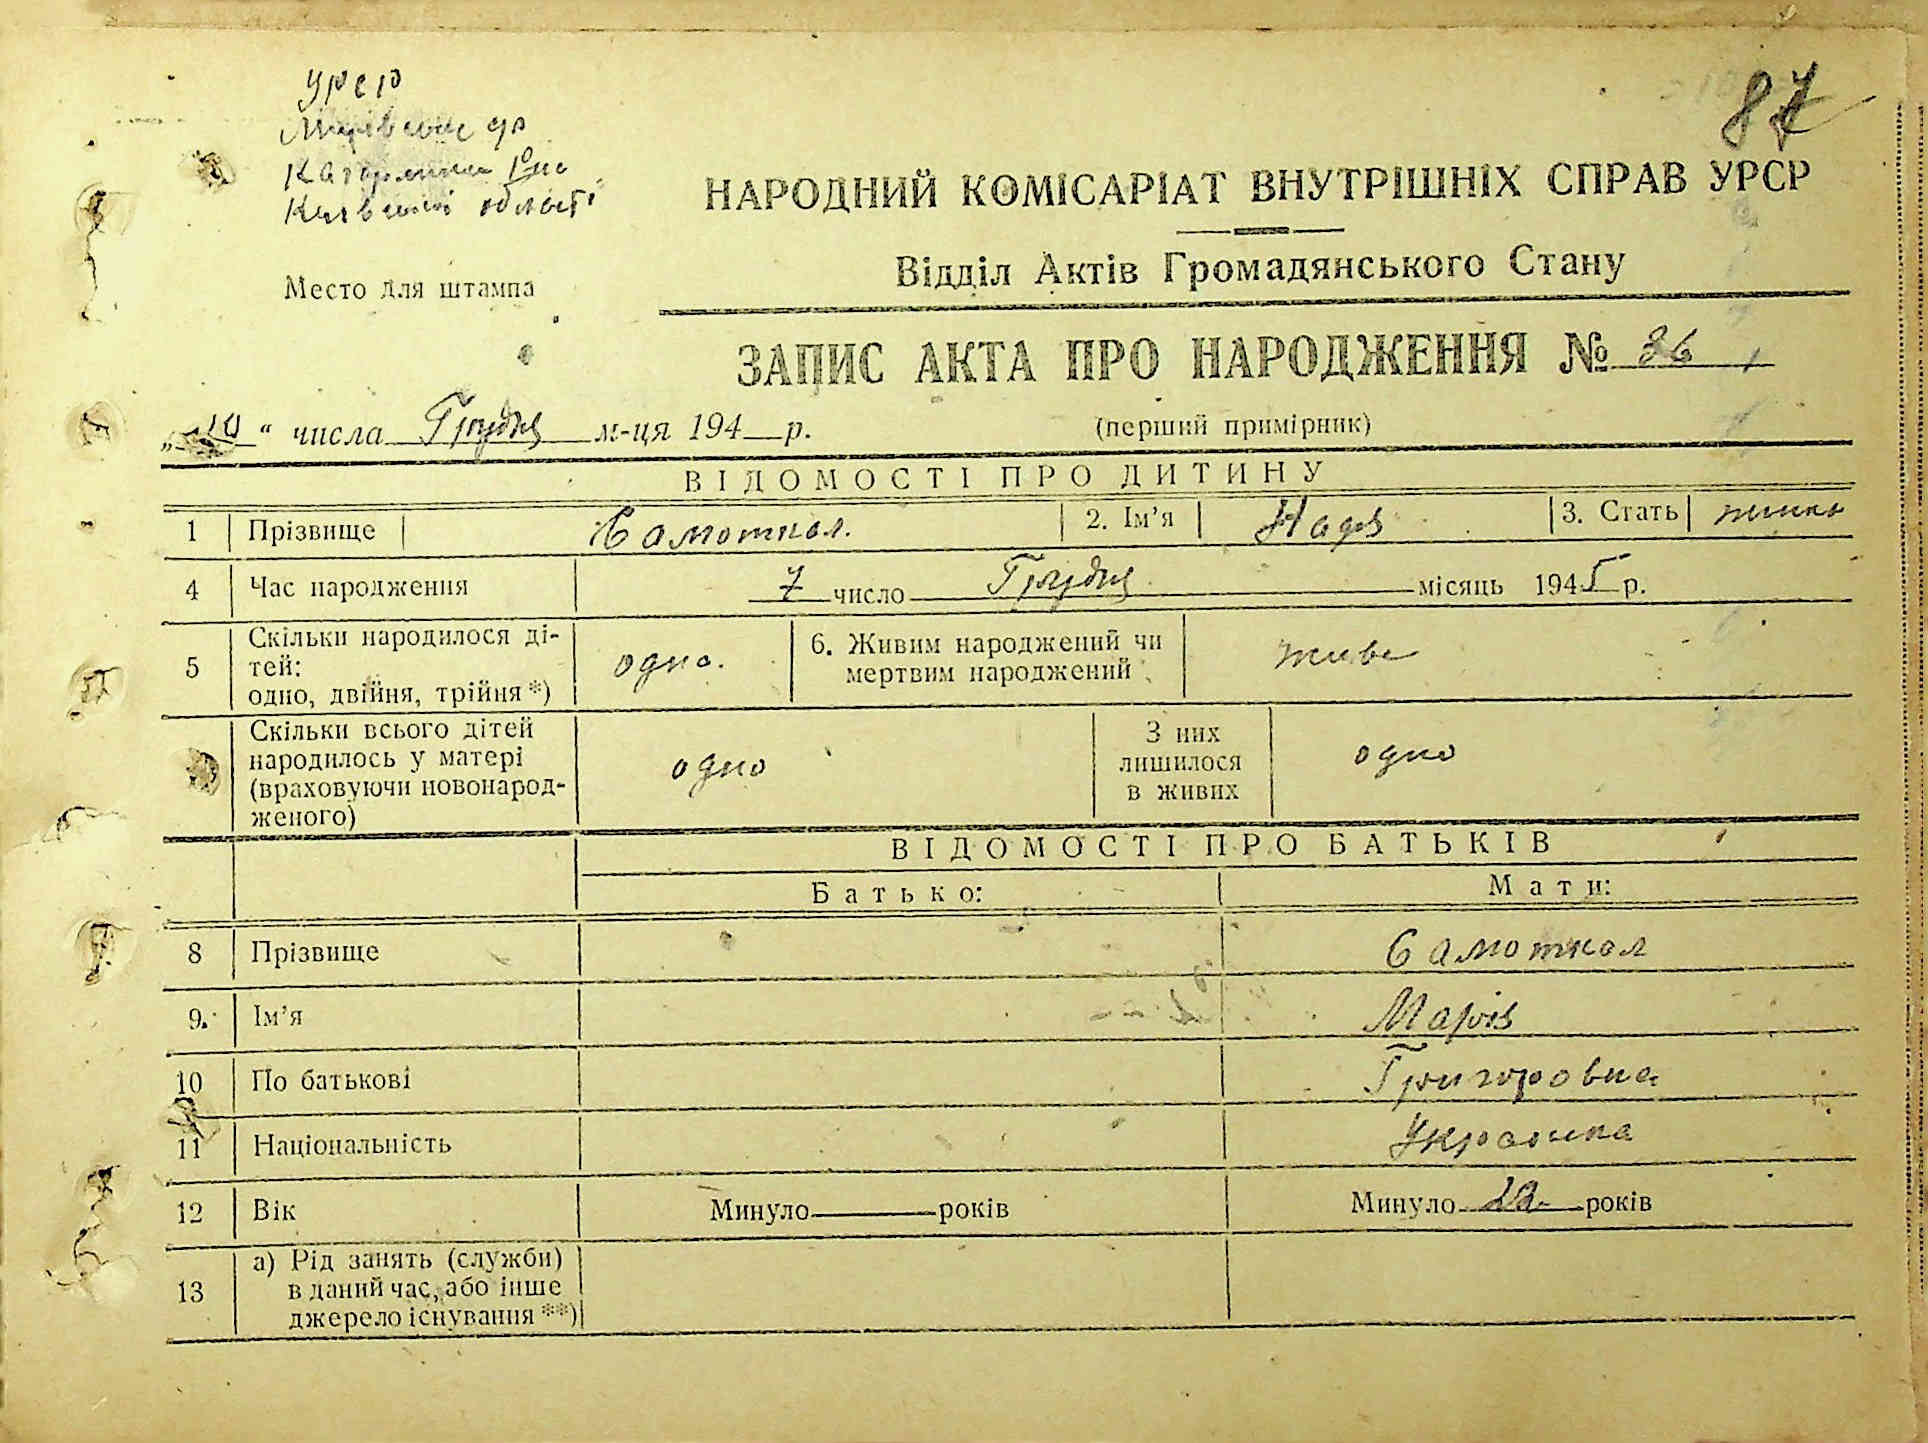 УРСР
Київської області
87
НАРОДНИЙ КОМІСАРІАТ ВНУТРІШНІХ СПРАВ УРСР
Відділ Актів Громадянського Стану
Место для штампа
ЗАПИС АКТА ПРО НАРОДЖЕННЯ № 36
„10“ числа Грудня м-ця 194 р.
(перший примірник)
ВІДОМОСТІ ПРО ДИТИНУ
1 Прізвище Самоткал. 2. Ім’я Надя 3. Стать
4 Час народження 7 число Грудня місяць 1945 р.
5 Скільки народилося ді-
тей:
одно, двійня, трійня *) одно. 6. Живим народжений чи
мертвим народжений живе
Скільки всього дітей
народилось у матері
(враховуючи новонарод-
женого) одно
З них
лишилося
в живих одно
ВІДОМОСТІ ПРО БАТЬКІВ
Батько: Мати:
8 Прізвище Самоткал
9. Ім’я Марія
10 По батькові Григоровна
11 Національність Українка
12 Вік Минуло років Минуло років
13 а) Рід занять (служби)
в даний час, або інше
джерело існування **)